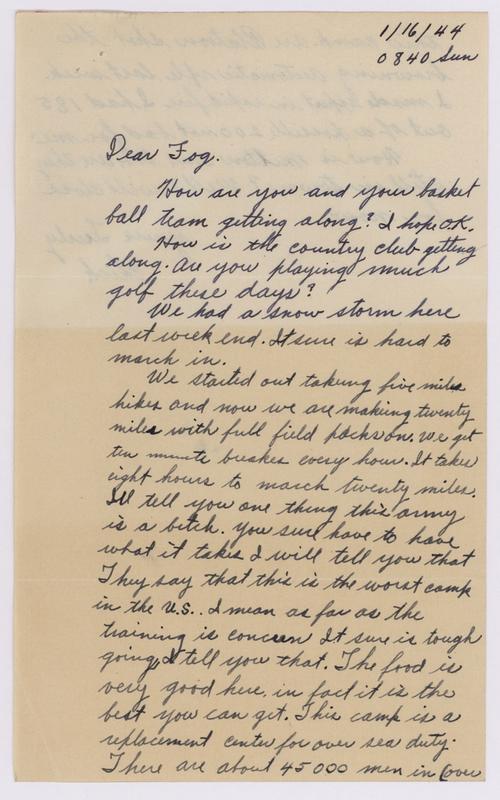 1/16/44
0840 Sun
Dear Fog.
How are you and your basket
ball team getting along? I hope O.K.
How is the country club getting
along. Are you playing much
golf these days?
We had a snow storm here
last week end. It sure is hard to
march in.
We started out takeing five miles
hikes and now we are makeing twenty
miles with full field packs on. We get
ten munite breakes every hour. It takes
eight hours to march twenty miles.
I'll tell you one thing this army
is a bitch. You sure have to have
what it takes I will tell you that
They say that this is the worst camp
in the U.S.. I mean as far as the
training is concern It sure is tough
going, I tell you that. The food is
very good here, in fact it is the
best you can get. This camp is a
replacement center for over sea duty.
There are about 45000 men in (over